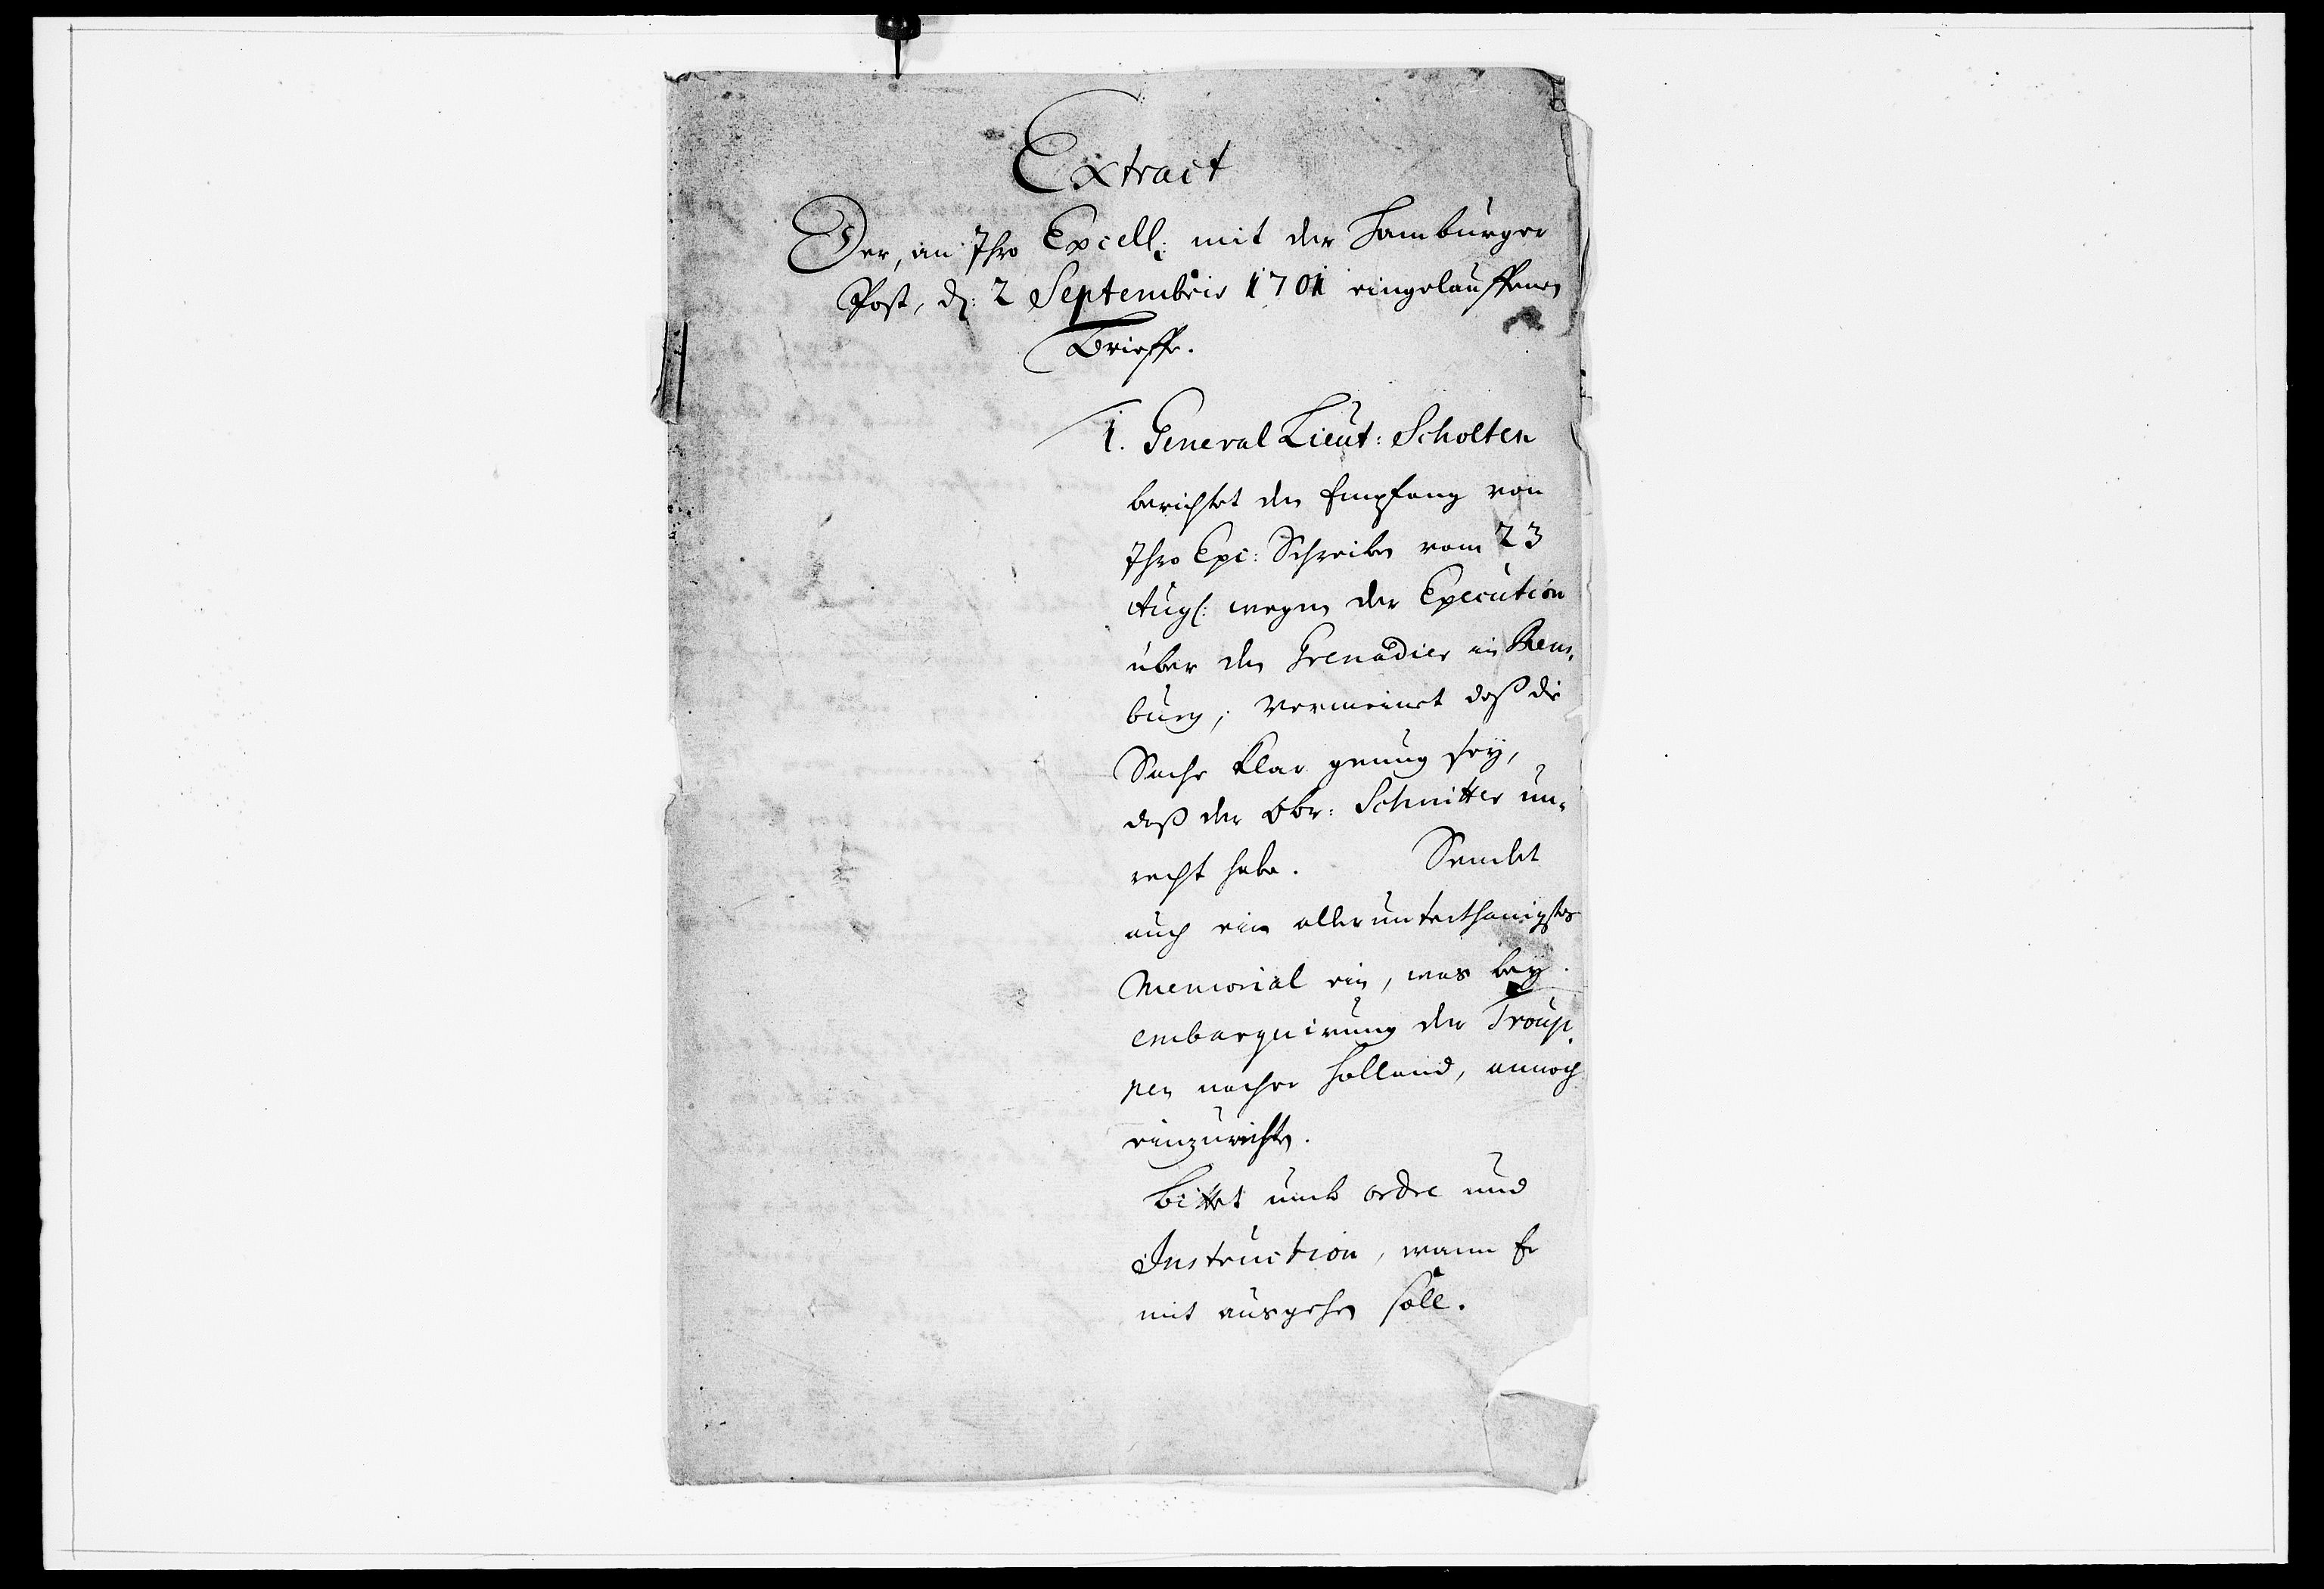 Extract
Der, an Ihro Excell: mit der Hamburger
Post, d: 2 Septembris 1701 eingelauffenen
Brieffe.
1. General Lieut: Scholten
berichtet den Empfang von
Ihro Exc: Schreiben vom 23
Aug: wegen der Execution
über den Grenadier in Rens,
burg; Vermeinet daß die
Sache klar genung sey,
daß der Obr: Schnitter un-
recht habe. Sendet
auch ein allerunterthänigstes
Memorial ein, was bey
embarquirung der Troup,
pen nacher Holland, annoch
einzurichten.
Bittet umb ordre und
Instruction, wann Er
mit ausgehen soll.